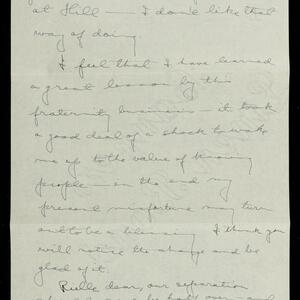 at Hill — I don't like that
way of doing.
I feel that I have learned
a great lesson by this
fraternity business — it took
a good deal of a shock to wake
me up to the value of knowing
people — in the end my
present misfortune may turn
out to be a blessing I think you
will notice the change and be
glad of it.
dear, our separation